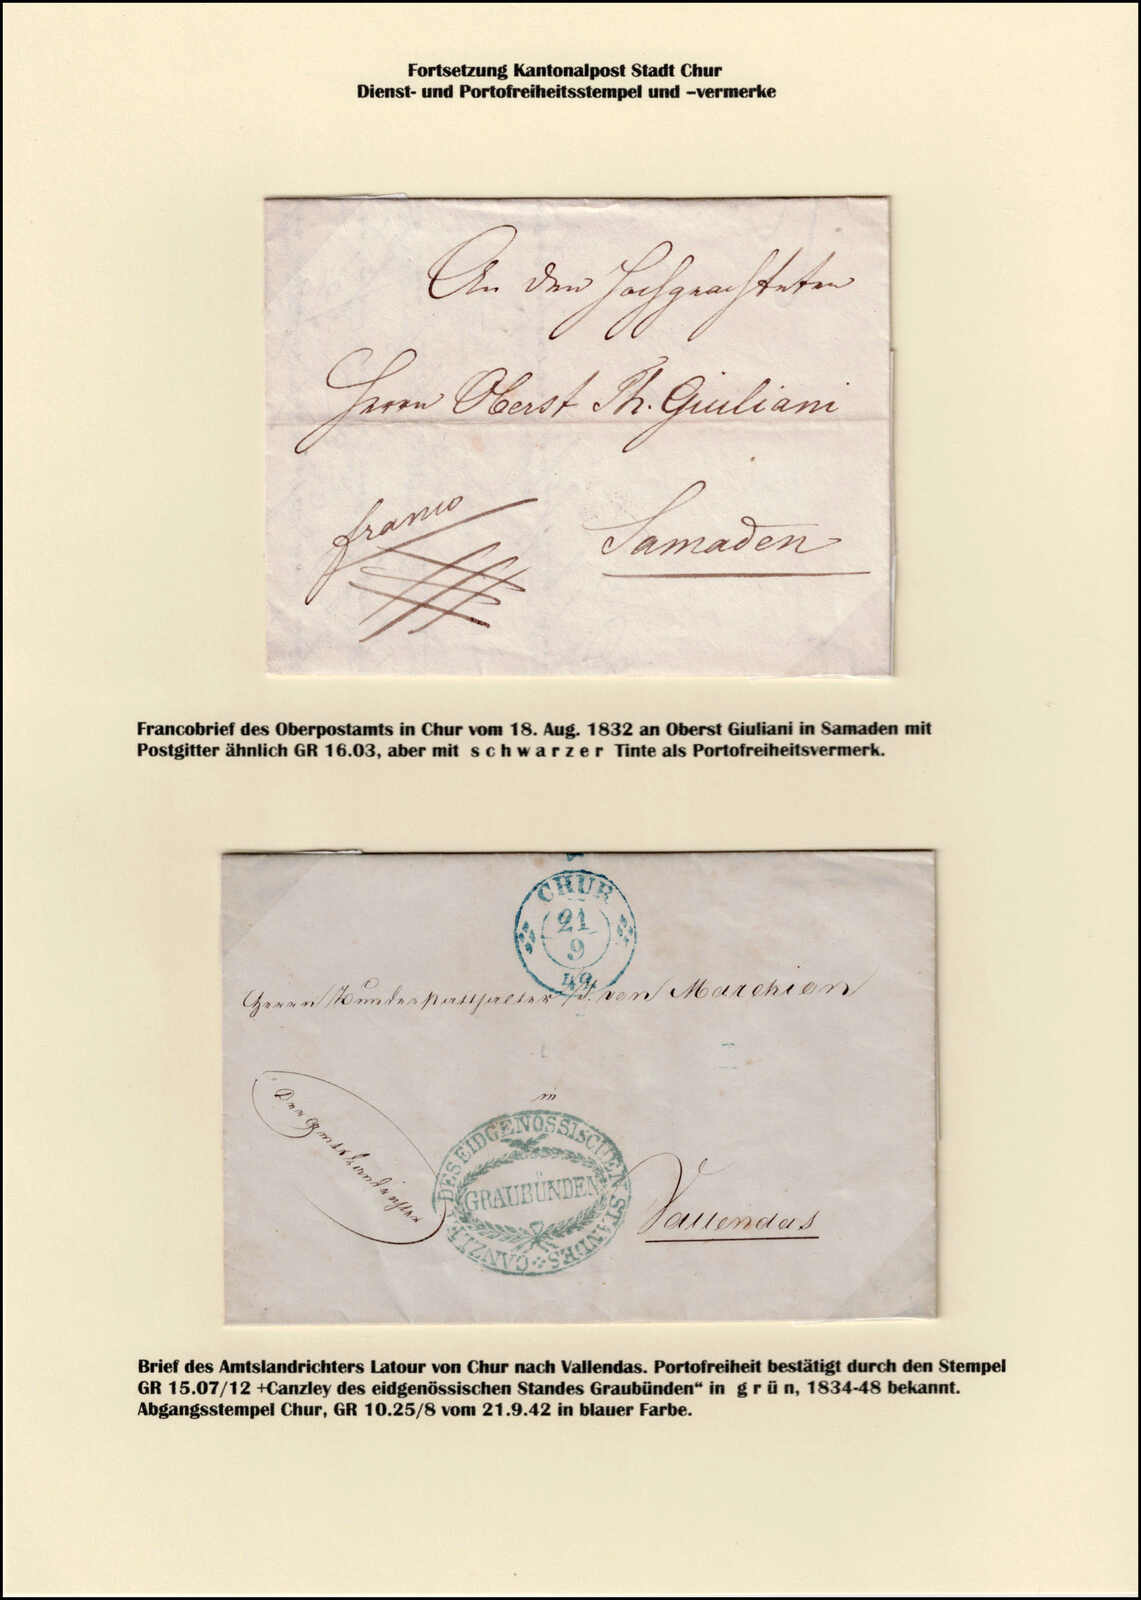 Fortsetzung Kantonalpost Stadt Chur
Dienst- und Portofreiheitsstempel und –vermerke
An den Hochgeachteten
Herrn Oberst Th. Giuliani
franco
Samaden
Francobrief des Oberpostamts in Chur vom 18. Aug. 1832 an Oberst Giuliani in Samaden mit
Postgitter ähnlich GR 16.03, aber mit s c h w a r z e r Tinte als Portofreiheitsvermerk.
CHUR
21
9
42
Herrn Bundesstatthalter von Marchion
in
Der Amtslandrichter
CANZLEI DES EIDGENÖSSISCHEN STANDES
GRAUBÜNDEN
Vallendas
Brief des Amtslandrichters Latour von Chur nach Vallendas. Portofreiheit bestätigt durch den Stempel
GR 15.07/12 +Canzley des eidgenössischen Standes Graubünden“ in g r ü n, 1834-48 bekannt.
Abgangsstempel Chur, GR 10.25/8 vom 21.9.42 in blauer Farbe.